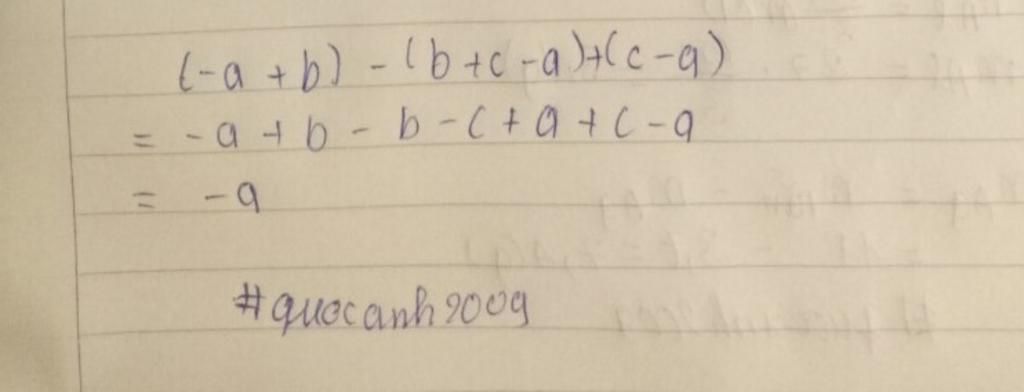 (-a + b) - (b + c - a) + (c - a)
= -a + b - b - c + a + c - a
= -a
#quocanh2009